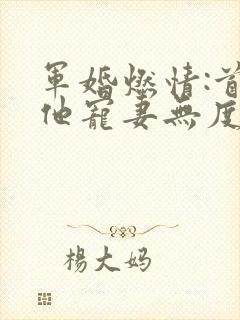 軍婚燃情:首
他寵妻無度
楊大妈